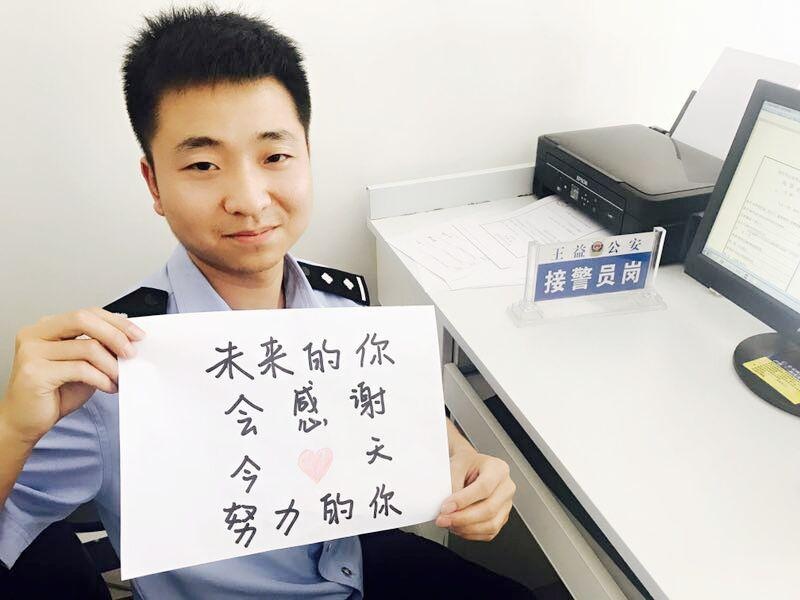 未来的你
会感谢
今天
努力的你
王益公安
接警员岗
EPSON